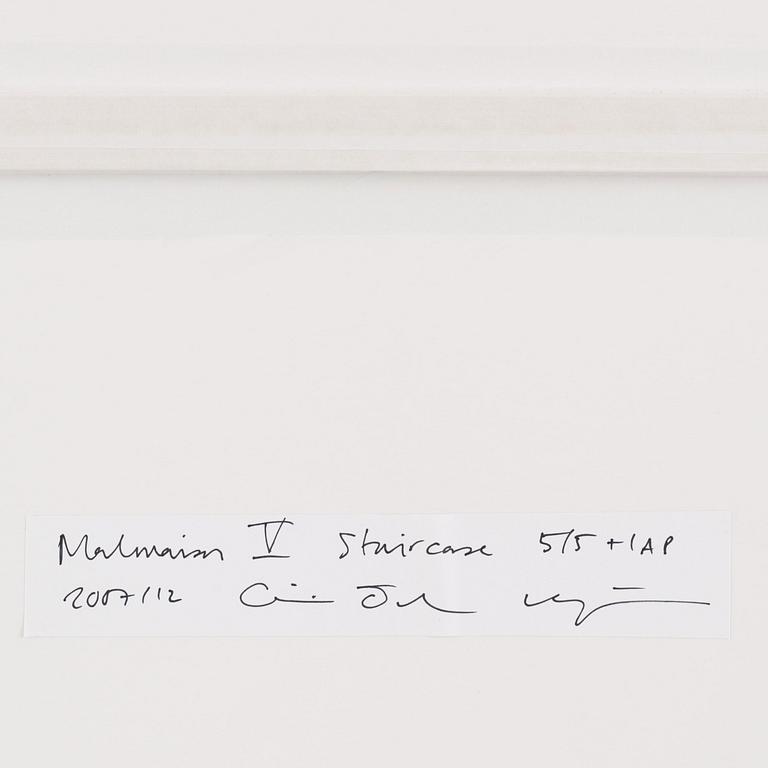 Malmaison V Staircase 5/5 + 1 AP
2007/12